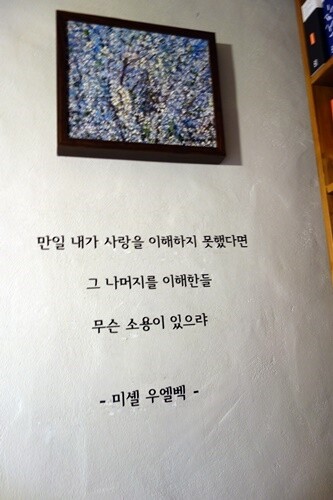 만일 내가 사랑을 이해하지 못했다면
그 나머지를 이해한들
무슨 소용이 있으랴
- 미셸 우엘벡 -